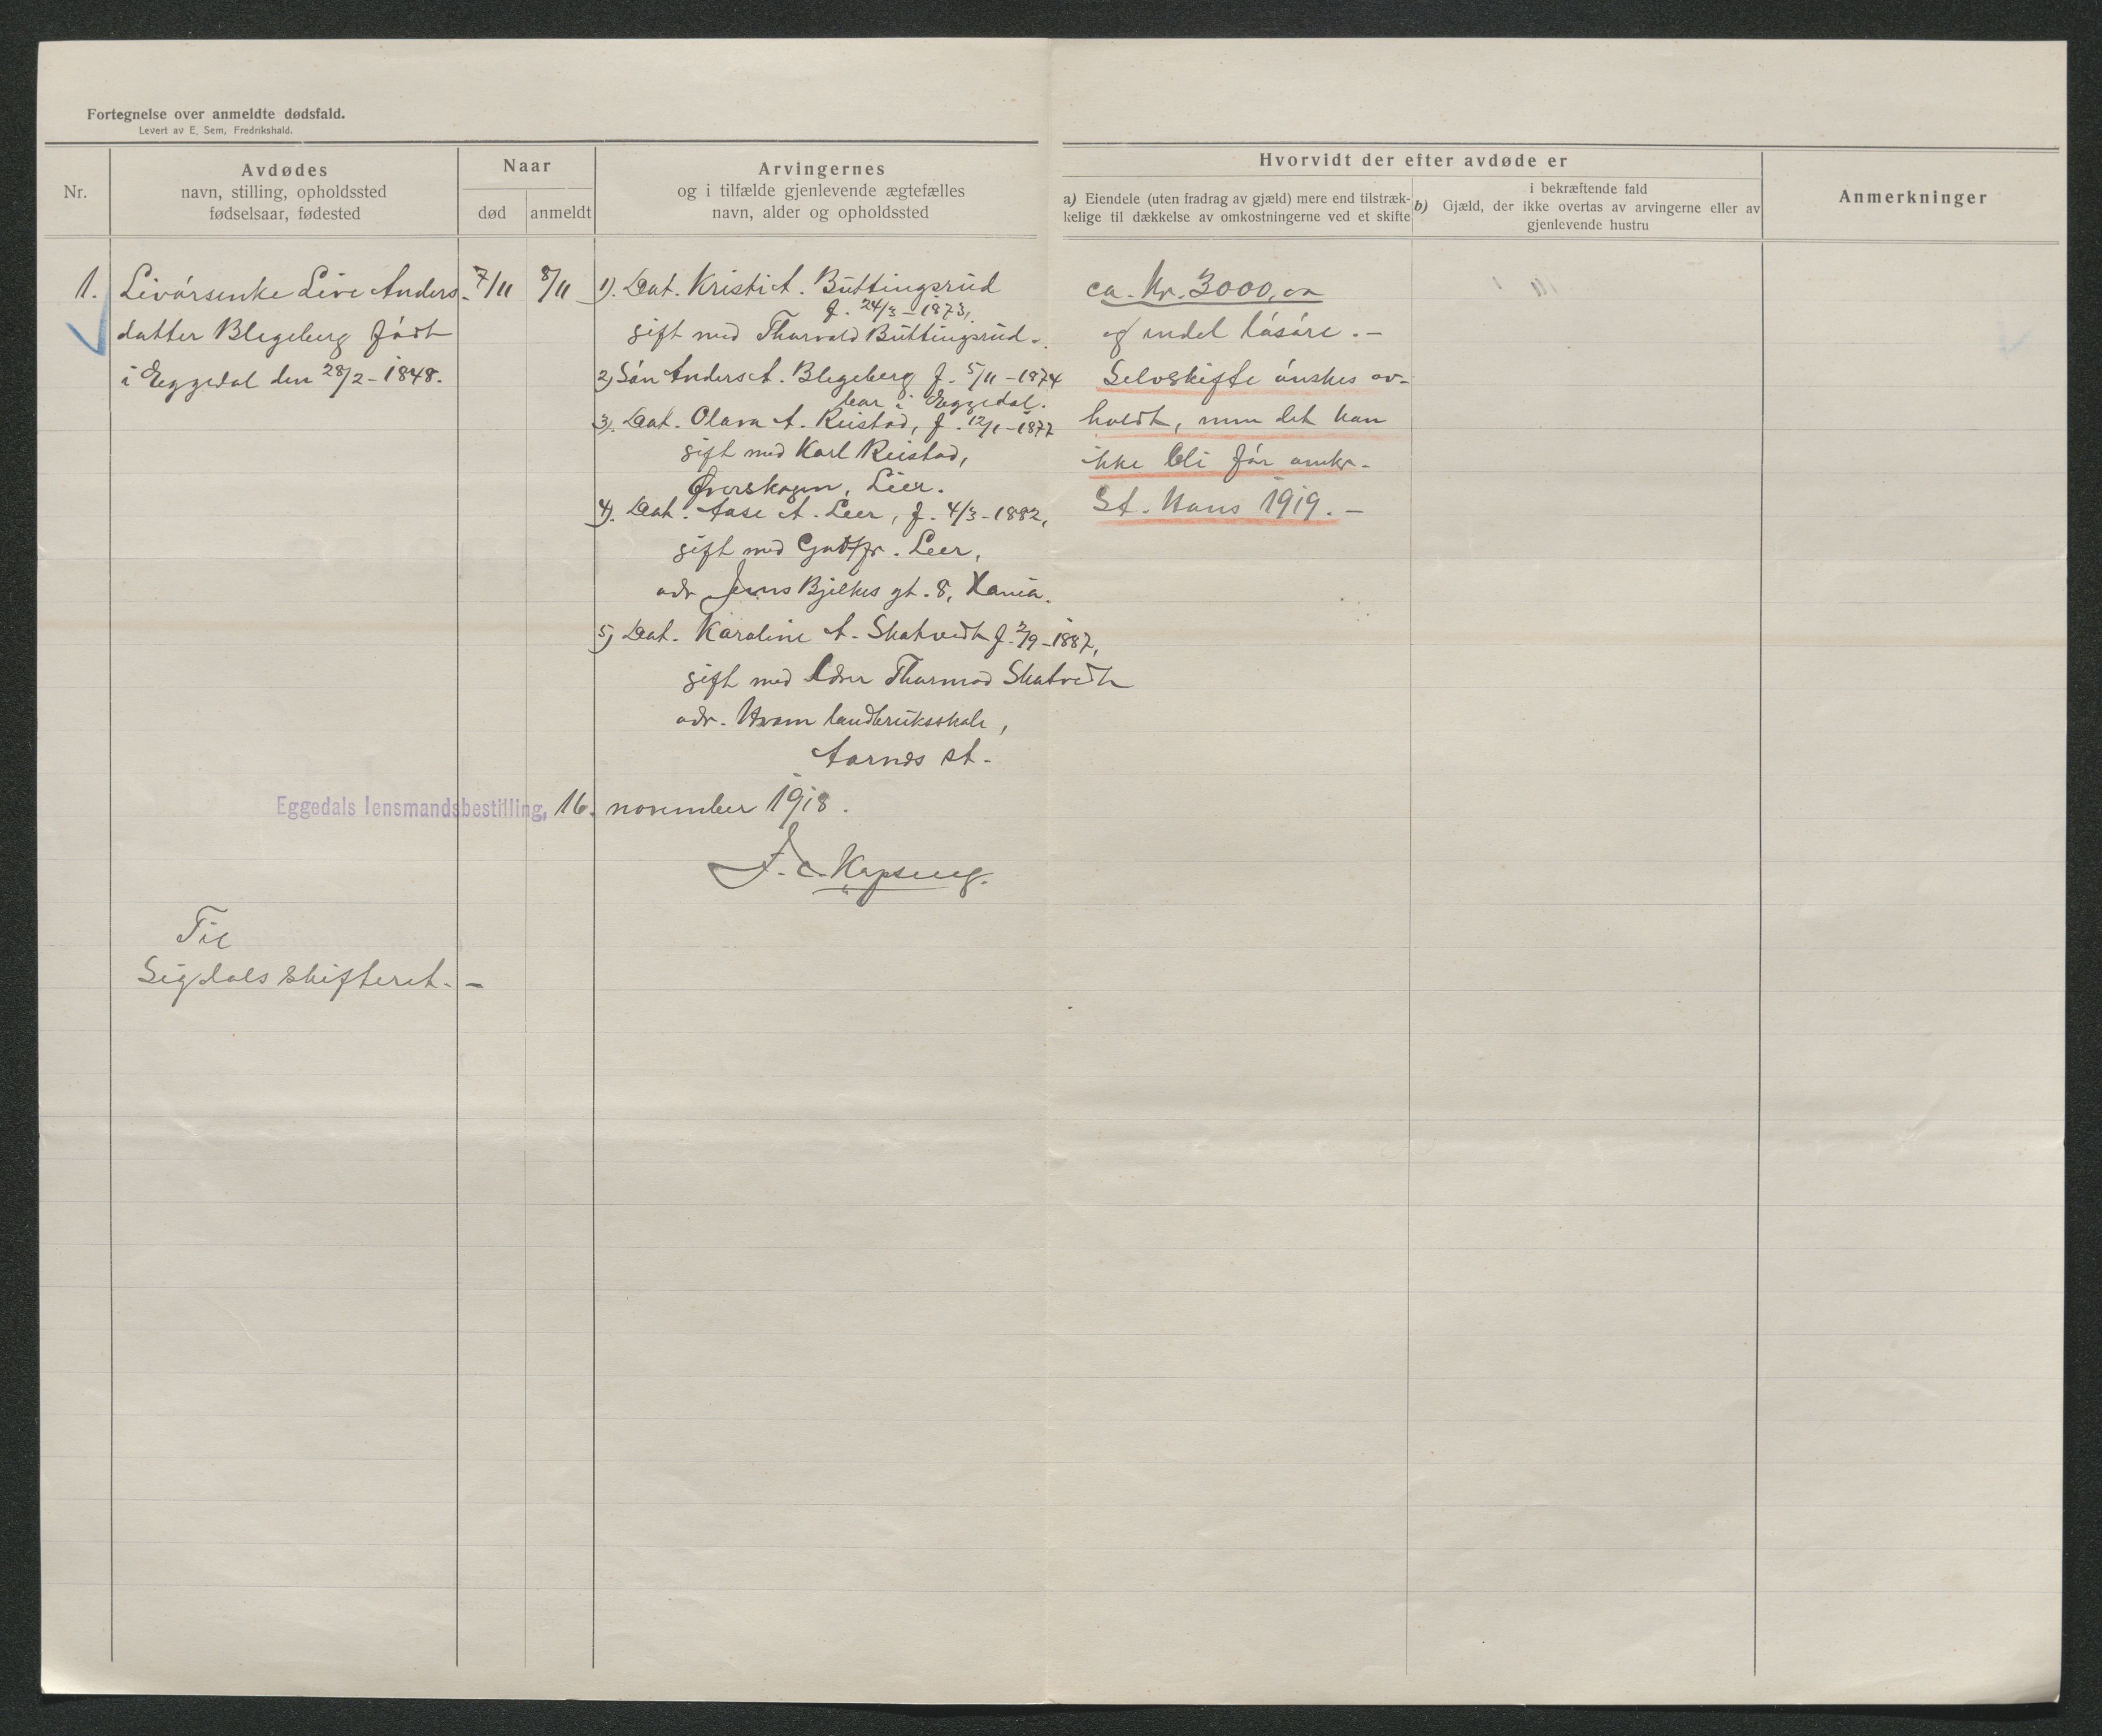 Fortegnelse over anmeldte dødsfald.
Levert av E. Sem, Fredrikshald.
Nr.
Avdødes
navn, stilling, opholdssted
fødselsaar, fødested
Naar
død
anmeldt
Arvingernes
og i tilfælde gjenlevende ægtefælles
navn, alder og opholdssted
Hvorvidt der efter avdøde er
a) Eiendele (uten fradrag av gjæld) mere end tilstræk-
kelige til dækkelse av omkostningerne ved et skifte
i bekræftende fald
b) Gjæld, der ikke overtas av arvingerne eller av
gjenlevende hustru
Anmerkninger
1.
Livørsenke Live Anders-
datter Blegeberg født
i Eggedal den 28/2-1848.
7/11
8/11
1). Dat. Kristi A. Buttingsrud
f. 24/3-1873,
gift med Thorvald Buttingsrud.
2) Søn Anders A. Blegeberg f. 5/11-1874
bor i Eggedal.
3). Dat. Olava A. Reistad, f. 12/1-1877
gift med Karl Reistad,
Øverskogen, Lier.
4). Dat. Aase A. Leer, f. 4/3-1882,
gift med Gottfr. Leer,
adr. Jens Bjelkes gt. 8, Kania.
5) Dat. Karoline A. Skatvedt f. 2/9-1887,
gift med Thormod Skatvedt
adr. Hvam landbruksskole,
Aarnes st.
ca. Kr. 3000,00
og endel løsøre. -
Selvskifte ønskes av-
holdt, men det kan
ikke bli før omkr.
St. Hans 1919. -
Eggedals lensmandsbestilling, 16. november 1918.
Til
Sigdals skifteret. -